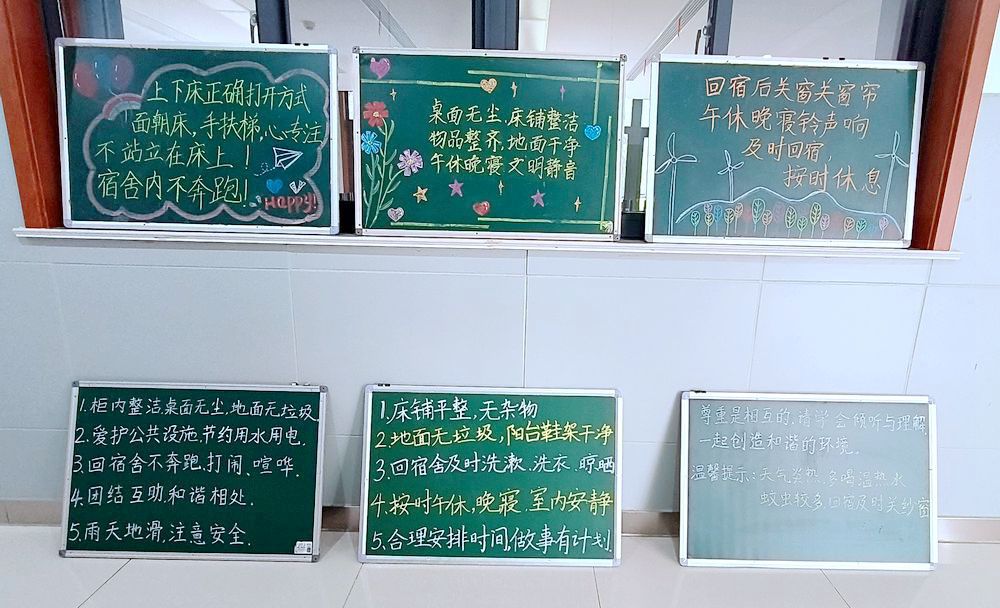 上下床正确打开方式
面朝床,手扶梯,心专注
不站立在床上!
宿舍内不奔跑!
Happy!
桌面无尘,床铺整洁
物品整齐,地面干净
午休晚寝文明静音
回宿后关窗关窗帘
午休晚寝铃声响
及时回宿,
按时休息
1.柜内整洁,桌面无尘,地面无垃圾
2.爱护公共设施,节约用水用电.
3.回宿舍不奔跑、打闹、喧哗.
4.团结互助,和谐相处.
5.雨天地滑,注意安全.
1.床铺平整,无杂物
2.地面无垃圾,阳台鞋架干净
3.回宿舍及时洗漱、洗衣、晾晒
4.按时午休,晚寝,室内安静
5.合理安排时间,做事有计划.
尊重是相互的,请学会倾听与理解,
一起创造和谐的环境.
温馨提示:天气炎热,多喝温热水
蚊虫较多回宿及时关纱窗